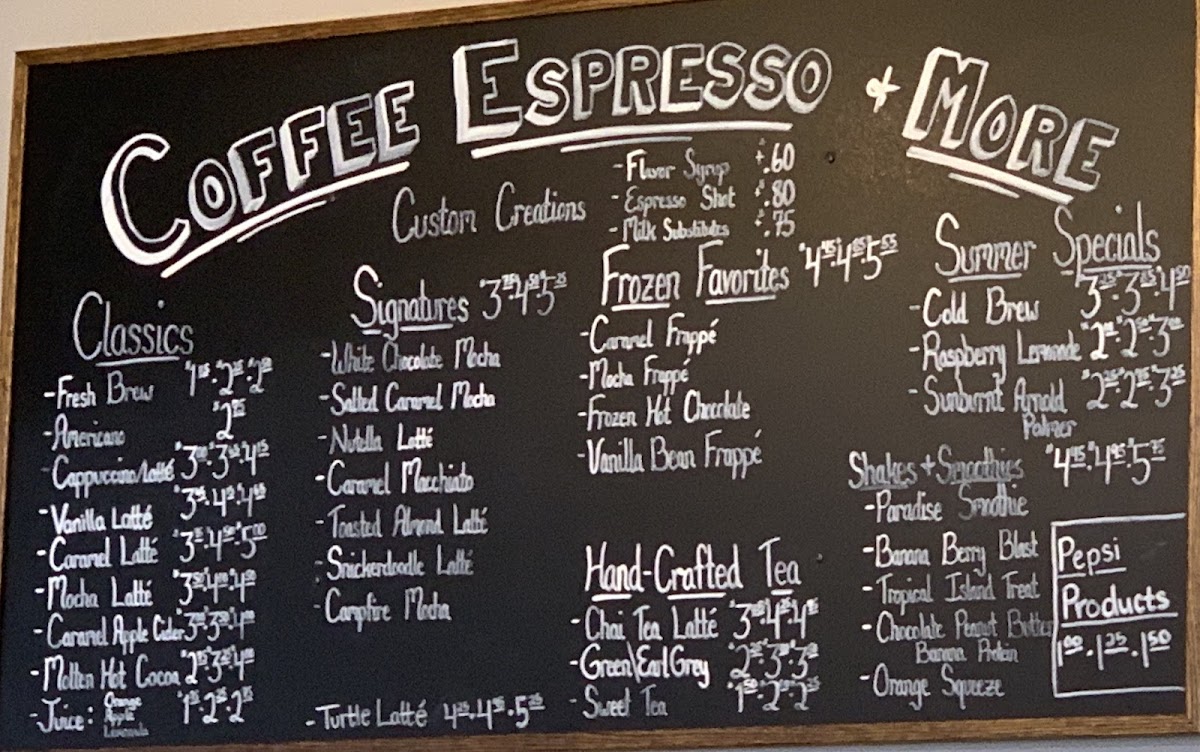 COFFEE ESPRESSO & MORE
Custom Creations
- Flavor Syrup +.60
- Espresso Shot +.80
- Milk Substitutes +.75
Classics
- Fresh Brew
- Americano
- Cappuccino/Latté
- Vanilla Latté
- Caramel Latté
- Mocha Latté
- Caramel Apple Cider
- Molten Hot Cocoa
- Juice: Orange
Apple
Lemonade
Signatures
- White Chocolate Mocha
- Salted Caramel Mocha
- Nutella Latté
- Caramel Macchiato
- Toasted Almond Latté
- Snickerdoodle Latté
- Campfire Mocha
- Turtle Latté
Frozen Favorites
- Caramel Frappé
- Mocha Frappé
- Frozen Hot Chocolate
- Vanilla Bean Frappé
Hand-Crafted Tea
- Chai Tea Latté
- Green\Earl Grey
- Sweet Tea
Summer Specials
- Cold Brew
- Raspberry Lemonade $2.00 . $2.50 . $3.00
- Sunburnt Arnold
Palmer
Shakes + Smoothies
- Paradise Smoothie
- Banana Berry Blast
- Tropical Island Treat
- Chocolate Peanut Butter
Banana Protein
- Orange Squeeze
Pepsi
Products
1.00 . 1.25 . 1.50